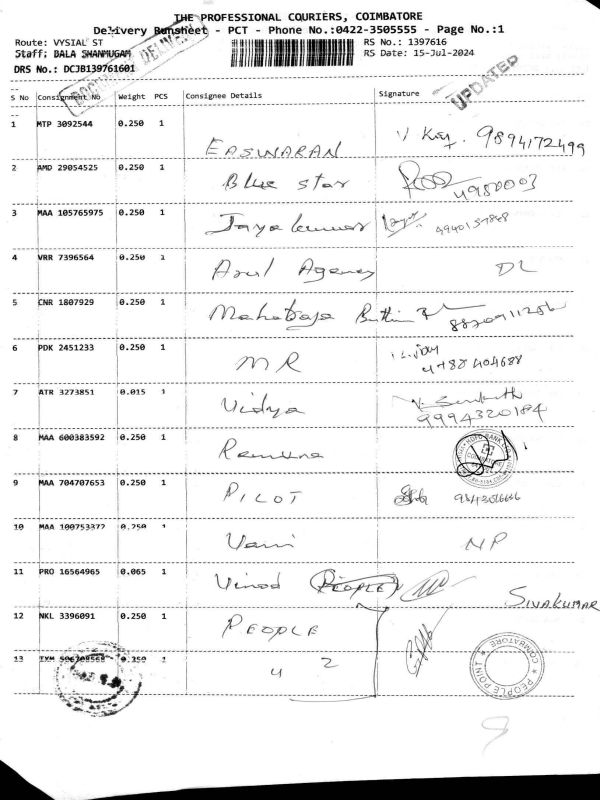 THE PROFESSIONAL COURIERS, COIMBATORE
Delivery Runsheet - PCT - Phone No.:0422-3505555 - Page No.:1
Route: VYSIAL ST RS No.: 1397616
Staff: BALA SHANMUGAM RS Date: 15-Jul-2024
DRS No.: DCJB139761601
UPDATED
S No Consignment No Weight PCS Consignee Details Signature
1 MTP 3092544 0.250 1 EASWARAN 9894172499
2 AMD 29054525 0.250 1 Blue star 4980003
3 MAA 105765975 0.250 1 Jayakumar
4 VRR 7396564 0.250 1 Arul Agency DL
5 CNR 1807929 0.250 1 Maharaja
6 PDK 2451233 0.250 1 MR
7 ATR 3273851 0.015 1 Vidya 9994320184
8 MAA 600383592 0.250 1
9 MAA 704707653 0.250 1 PILOT
10 MAA 100753377 0.250 1 NP
11 PRO 16564965 0.065 1 Vinod PEOPLE
SIVAKUMAR
12 NKL 3396091 0.250 1 PEOPLE
13 0.250 1 4 2
PEOPLE POINT COIMBATORE